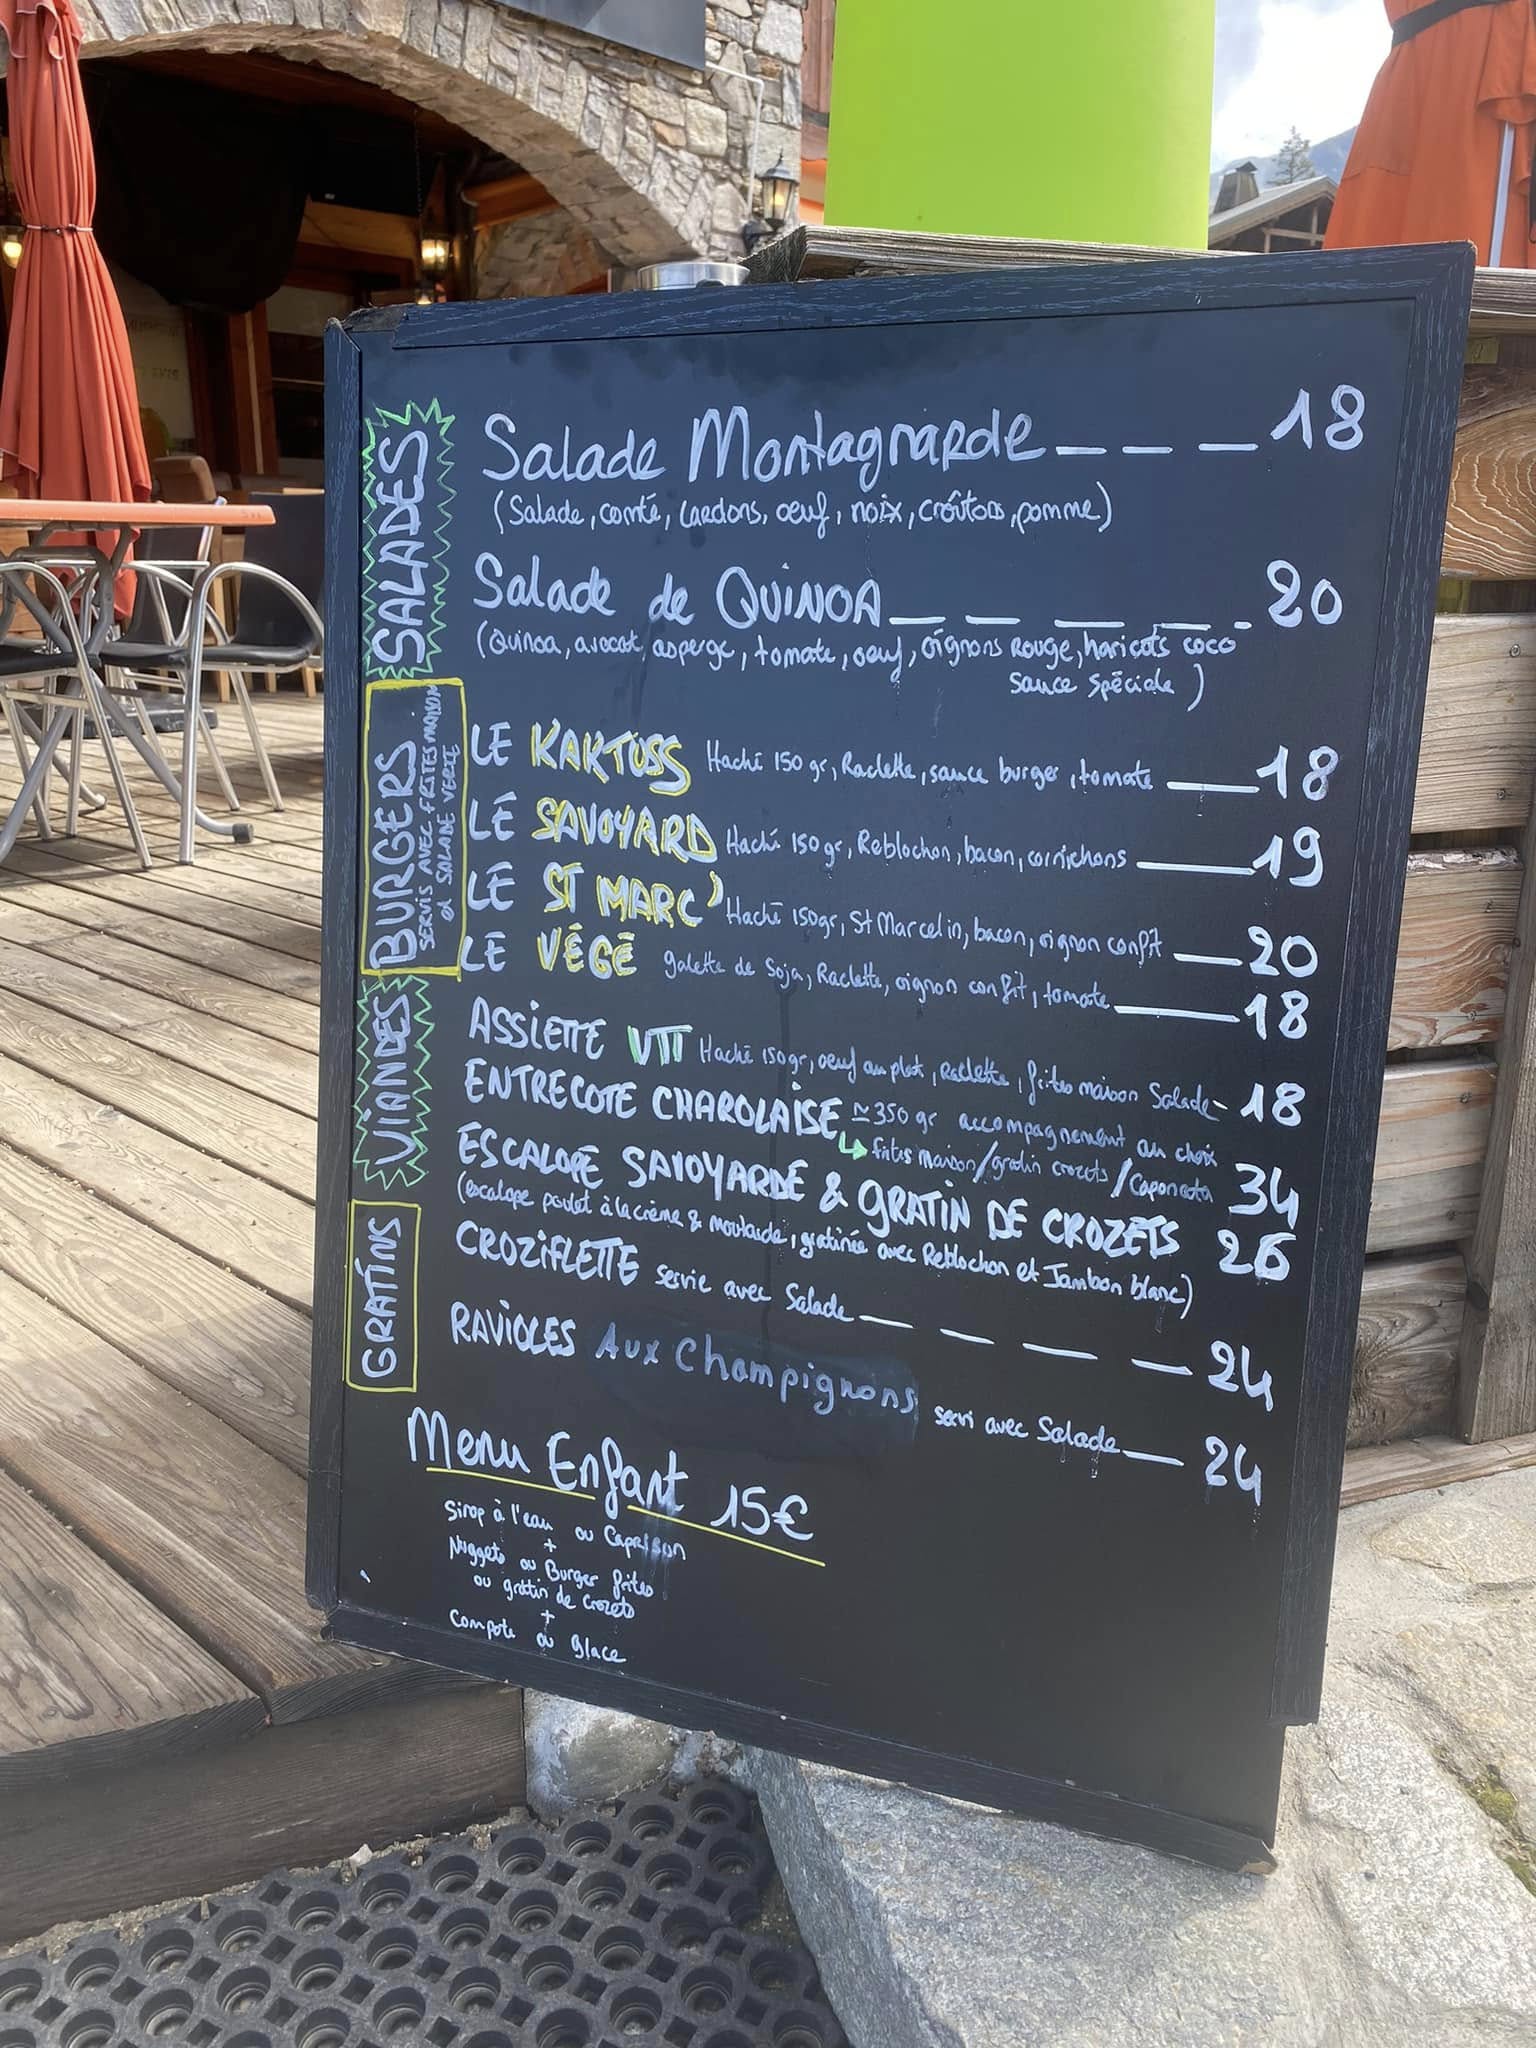 SALADES
Salade Montagnarde _ _ _ 18
(Salade, comté, lardons, oeuf, noix, croûtons, pomme)
Salade de QUINOA _ _ _ _ . 20
(Quinoa, avocat, asperge, tomate, oeuf, oignons rouge, haricots coco
sauce spéciale)
BURGERS
SERVIS AVEC FRITES MAISON
et SALADE VERTE
LE KAKTUSS Haché 150 gr, Raclette, sauce burger, tomate — 18
LE SAVOYARD Haché 150 gr, Reblochon, bacon, cornichons — 19
LE ST MARC' Haché 150gr, St Marcelin, bacon, oignon confit — 20
LE VÉGÉ galette de Soja, Raclette, oignon confit, tomate — 18
VIANDES
ASSIETTE VTT Haché 150gr, oeuf au plat, Raclette, frites maison Salade - 18
ENTRECOTE CHAROLAISE ≃ 350 gr accompagnement au choix
↳ frites maison/gratin crozets/Caponata 34
ESCALOPE SAVOYARDE & GRATIN DE CROZETS 26
(escalope poulet à la crème & moutarde, gratinée avec Reblochon et Jambon blanc)
GRATINS
CROZIFLETTE servie avec Salade _ _ _ _ 24
RAVIOLES Aux Champignons servi avec Salade — 24
Menu Enfant 15€
Sirop à l'eau ou Caprisun
+
Nuggets ou Burger frites
ou gratin de crozets
+
Compote ou glace